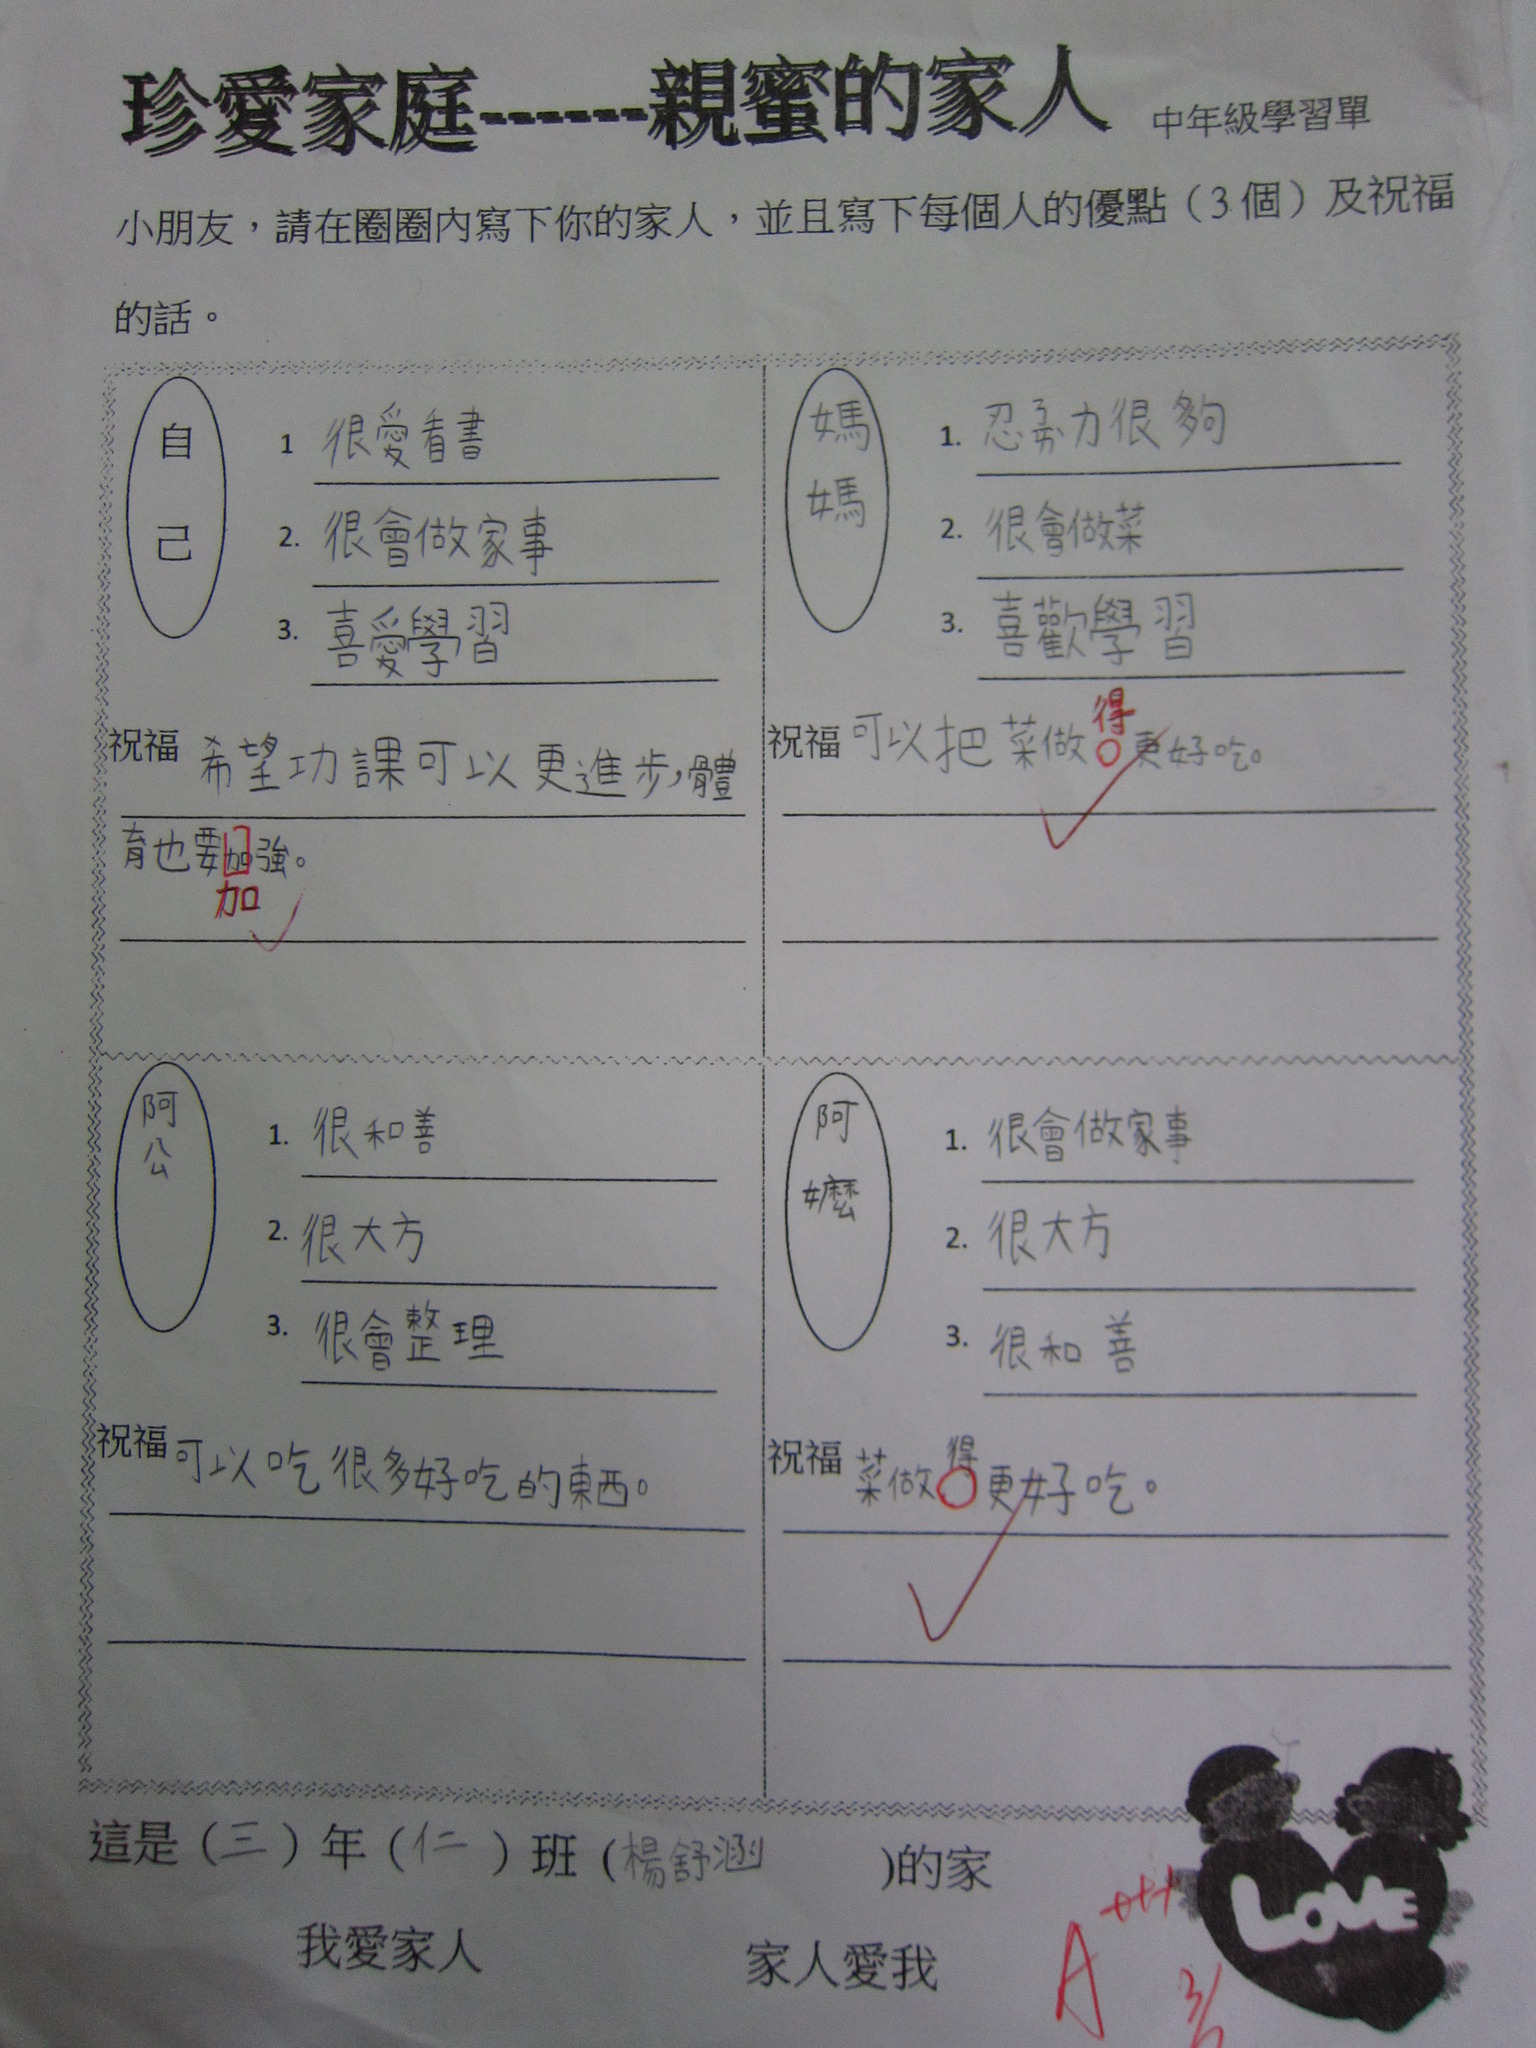 珍愛家庭------親蜜的家人 中年級學習單
小朋友，請在圈圈內寫下你的家人，並且寫下每個人的優點（3個）及祝福
的話。
自己
1 很愛看書
2. 很會做家事
3. 喜愛學習
祝福 希望功課可以更進步,體
育也要加強。
加
媽媽
1. 忍耐力很夠
2. 很會做菜
3. 喜歡學習
得
祝福 可以把菜做 更好吃。
阿公
1. 很和善
2. 很大方
3. 很會整理
祝福 可以吃很多好吃的東西。
阿嬤
1. 很會做家事
2. 很大方
3. 很和善
得
祝福 菜做 更好吃。
這是（三）年（仁）班（楊舒涵 )的家
我愛家人 家人愛我
LOVE
A+++